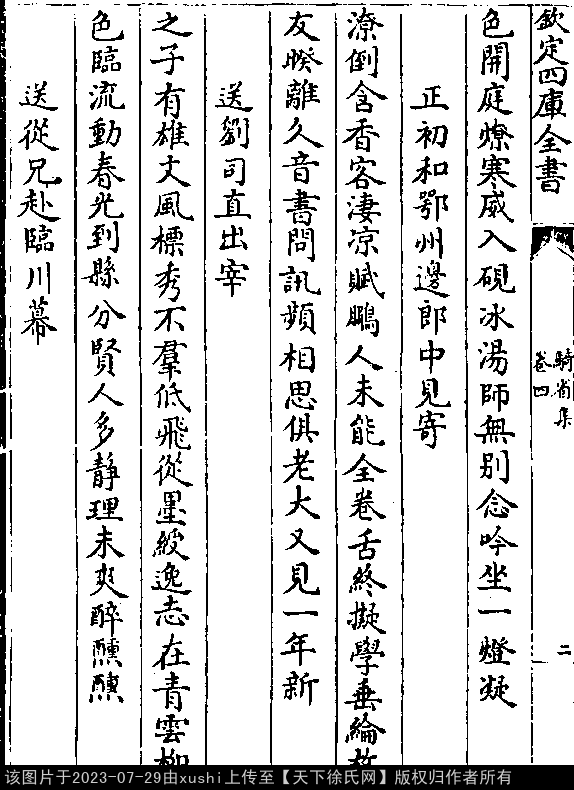 欽定四庫全書
騎省集
卷四
二
色開庭燎寒威入硯冰湯師無别念吟坐一燈凝
正初和鄂州邊郎中見寄
潦倒含香客淒凉賦鵩人未能全卷舌終擬學垂綸故
友暌離久音書問訊頻相思俱老大又見一年新
送劉司直出宰
之子有雄文風標秀不羣低飛從墨綬逸志在青雲柳
色臨流動春光到縣分賢人多靜理未爽醉醺醺
送從兄赴臨川幕
该图片于2023-07-29由xushi上传至【天下徐氏网】版权归作者所有